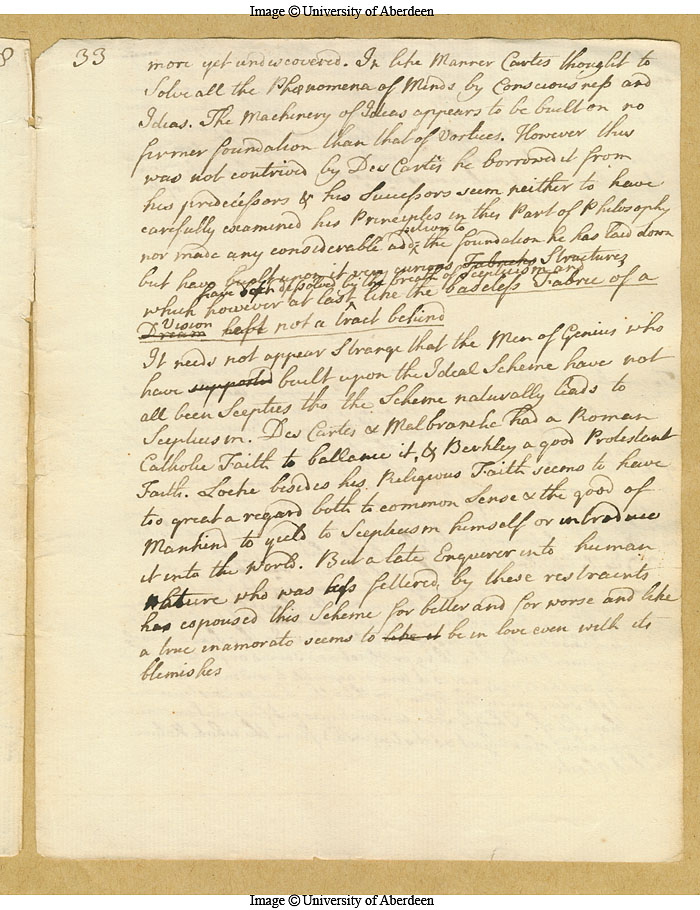 Image © University of Aberdeen
8
33
more yet undiscovered. In like Manner Cartes thought to
Solve all the Phænomena of Minds by Consciousness and
Ideas. The Machinery of Ideas appears to be built on no
firmer foundation than that of Vortices. However this
was not contrived by Des Cartes he borrowed it from
his predecessors & his Successors seem neither to have
carefully examined his Principles in this Part of Philosophy
nor made any considerable additions to the foundation he has laid down
but have built upon it very curious Fabricks Structures
have been dissolved by the breath of Scepticism and
which however at last like the baseless Fabric of a
Vision
Dream have left not a tract behind
It needs not appear Strange that the Men of Genius who
have supported built upon the Ideal Scheme have not
all been Sceptics tho the Scheme naturally leads to
Scepticism. Des Cartes & Malbranche had a Roman
Catholic Faith to ballance it, & Berkley a good Protestant
Faith. Locke besides his Religious Faith seems to have
too great a regard both to common Sense & the good of
Mankind to yield to Scepticism himself or introduce
it into the world. But a late Enquirer into human
Nature who was less fettered by these restraints
has espoused this Scheme for better and for worse and like
a true inamorato seems to like it be in love even with its
blemishes
Image © University of Aberdeen